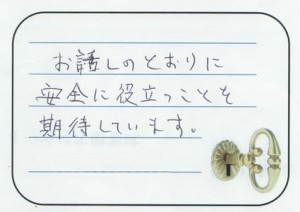 お話しのとおりに
安全に役立つことを
期待しています。